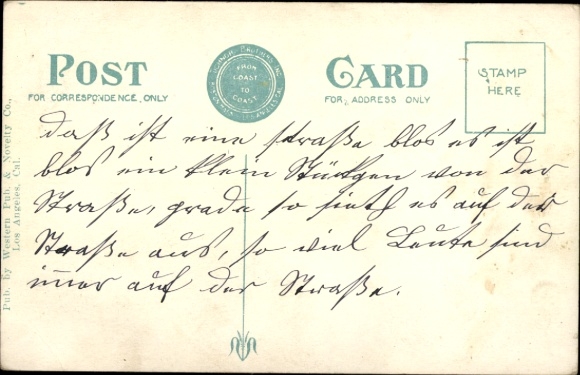 POST CARD
FROM COAST TO COAST
STAMP HERE
FOR CORRESPONDENCE ONLY
FOR ADDRESS ONLY
daß ist eine straße blos es ist
blos ein klein Stückgen von der
Straße, grade so sieth es auf der
Straße aus, so viel Leute sind
imer auf der Straße.
Pub. By Western Pub. & Novelty Co.,
Los Angeles, Cal.